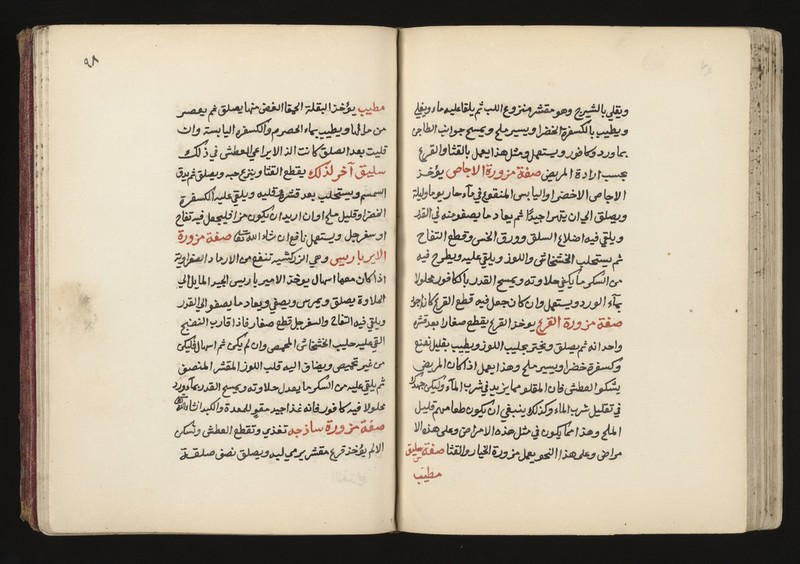 ويقلي بالشيرج وهو مقشر منزوع اللب ثم يلقا عليه ماء ويغلي
ويطيب بالكسفرة الخضرا ويسير ملح ويمسح جوانب الطاجن
بماورد وكافور ويستعمل ومثل هذا يعمل بالقثا والقرع
بحسب ارادة المريض صفة مزورة الاجاص يوخذ
الاجاص الاخضر او اليابس المنقوع في ماء حار يوما وليلة
ويصلق الي ان يتهرا جيدا ثم يعاد ما يصفو منه في القدر
ويلقي فيه اضلاع السلق وورق الخس وقطع التفاح
ثم يستحلب الخشخاش واللوز ويلقي عليه ويطرح فيه
من السكر ما يكفي حلاوته ويمسح القدر بالكافور محلولا
بماء الورد ويستعمل وان كان جعل فيه قطع القرع كان اجود
صفة مزورة القرع يوخذ القرع يقطع صغارا بعد قشره
واحدانه ثم يصلق ويخثر بحليب اللوز ويطيب بقليل نعنع
وكسفرة خضرا ويسير ملح وهذا يعمل اذا كان المريض
يشكو العطش فان المقلو مما يزيد في شرب الماء وليكن جهدك
في تقليل شرب الماء وكذلك ينبغي ان يكون طعامهم قليل
الملح وهذا مما يكون في مثل هذه الامراض وعلي هذه الا
مراض وعلي هذا النحو يعمل مزورة الخيار والقثا صفة سليق
مطيب
٩٨
مطيب يؤخذ البقلة الحمقا الغض منها يصلق ثم يعصر
من مائها ويطيب بماء الحصرم والكسفرة اليابسة وان
قليت بعد الصلق كانت الذ الا يراعي العطش في ذلك
سليق آخر لذلك يقطع القثا وينزع حبه ويصلق ثم يدق
السمسم ويستحلب بعد قشره وقليه ويلقي عليه الكسفرة
الخضرا وقليل ملح وان اريد ان يكون مزا فليجعل فيه تفاح
او سفرجل ويستعمل نافع ان شاء الله تعالي صفة مزورة
الابرباريس وهي الزركشيه تنفع من الارماد الصفراوية
اذا كان معها اسهال يوخذ الاميرباريس الجيد المايل الي
الحلاوة يصلق ويمرس ويصفي ويعاد ما يصفو الي القدر
ويلقي فيه التفاح والسفرجل قطع صغار فاذا قارب النضيج
القي عليه حليب الخشخاش المحمص وان لم يكن ثم اسهال فليكن
من غير تحميص ويضاف اليه قلب اللوز المقشر المنصف
ثم يلقي عليه من السكر ما يعدل حلاوته ويمسح القدر بماورد
محلولا فيه كافور فانه غذا جيد مقو للمعدة والكبد انشاء الله
صفة مزورة ساذجه تغذي وتقطع العطش وتسكن
الالم يؤخذ قرع مقشر يرمي لبه ويصلق نصف صلقة